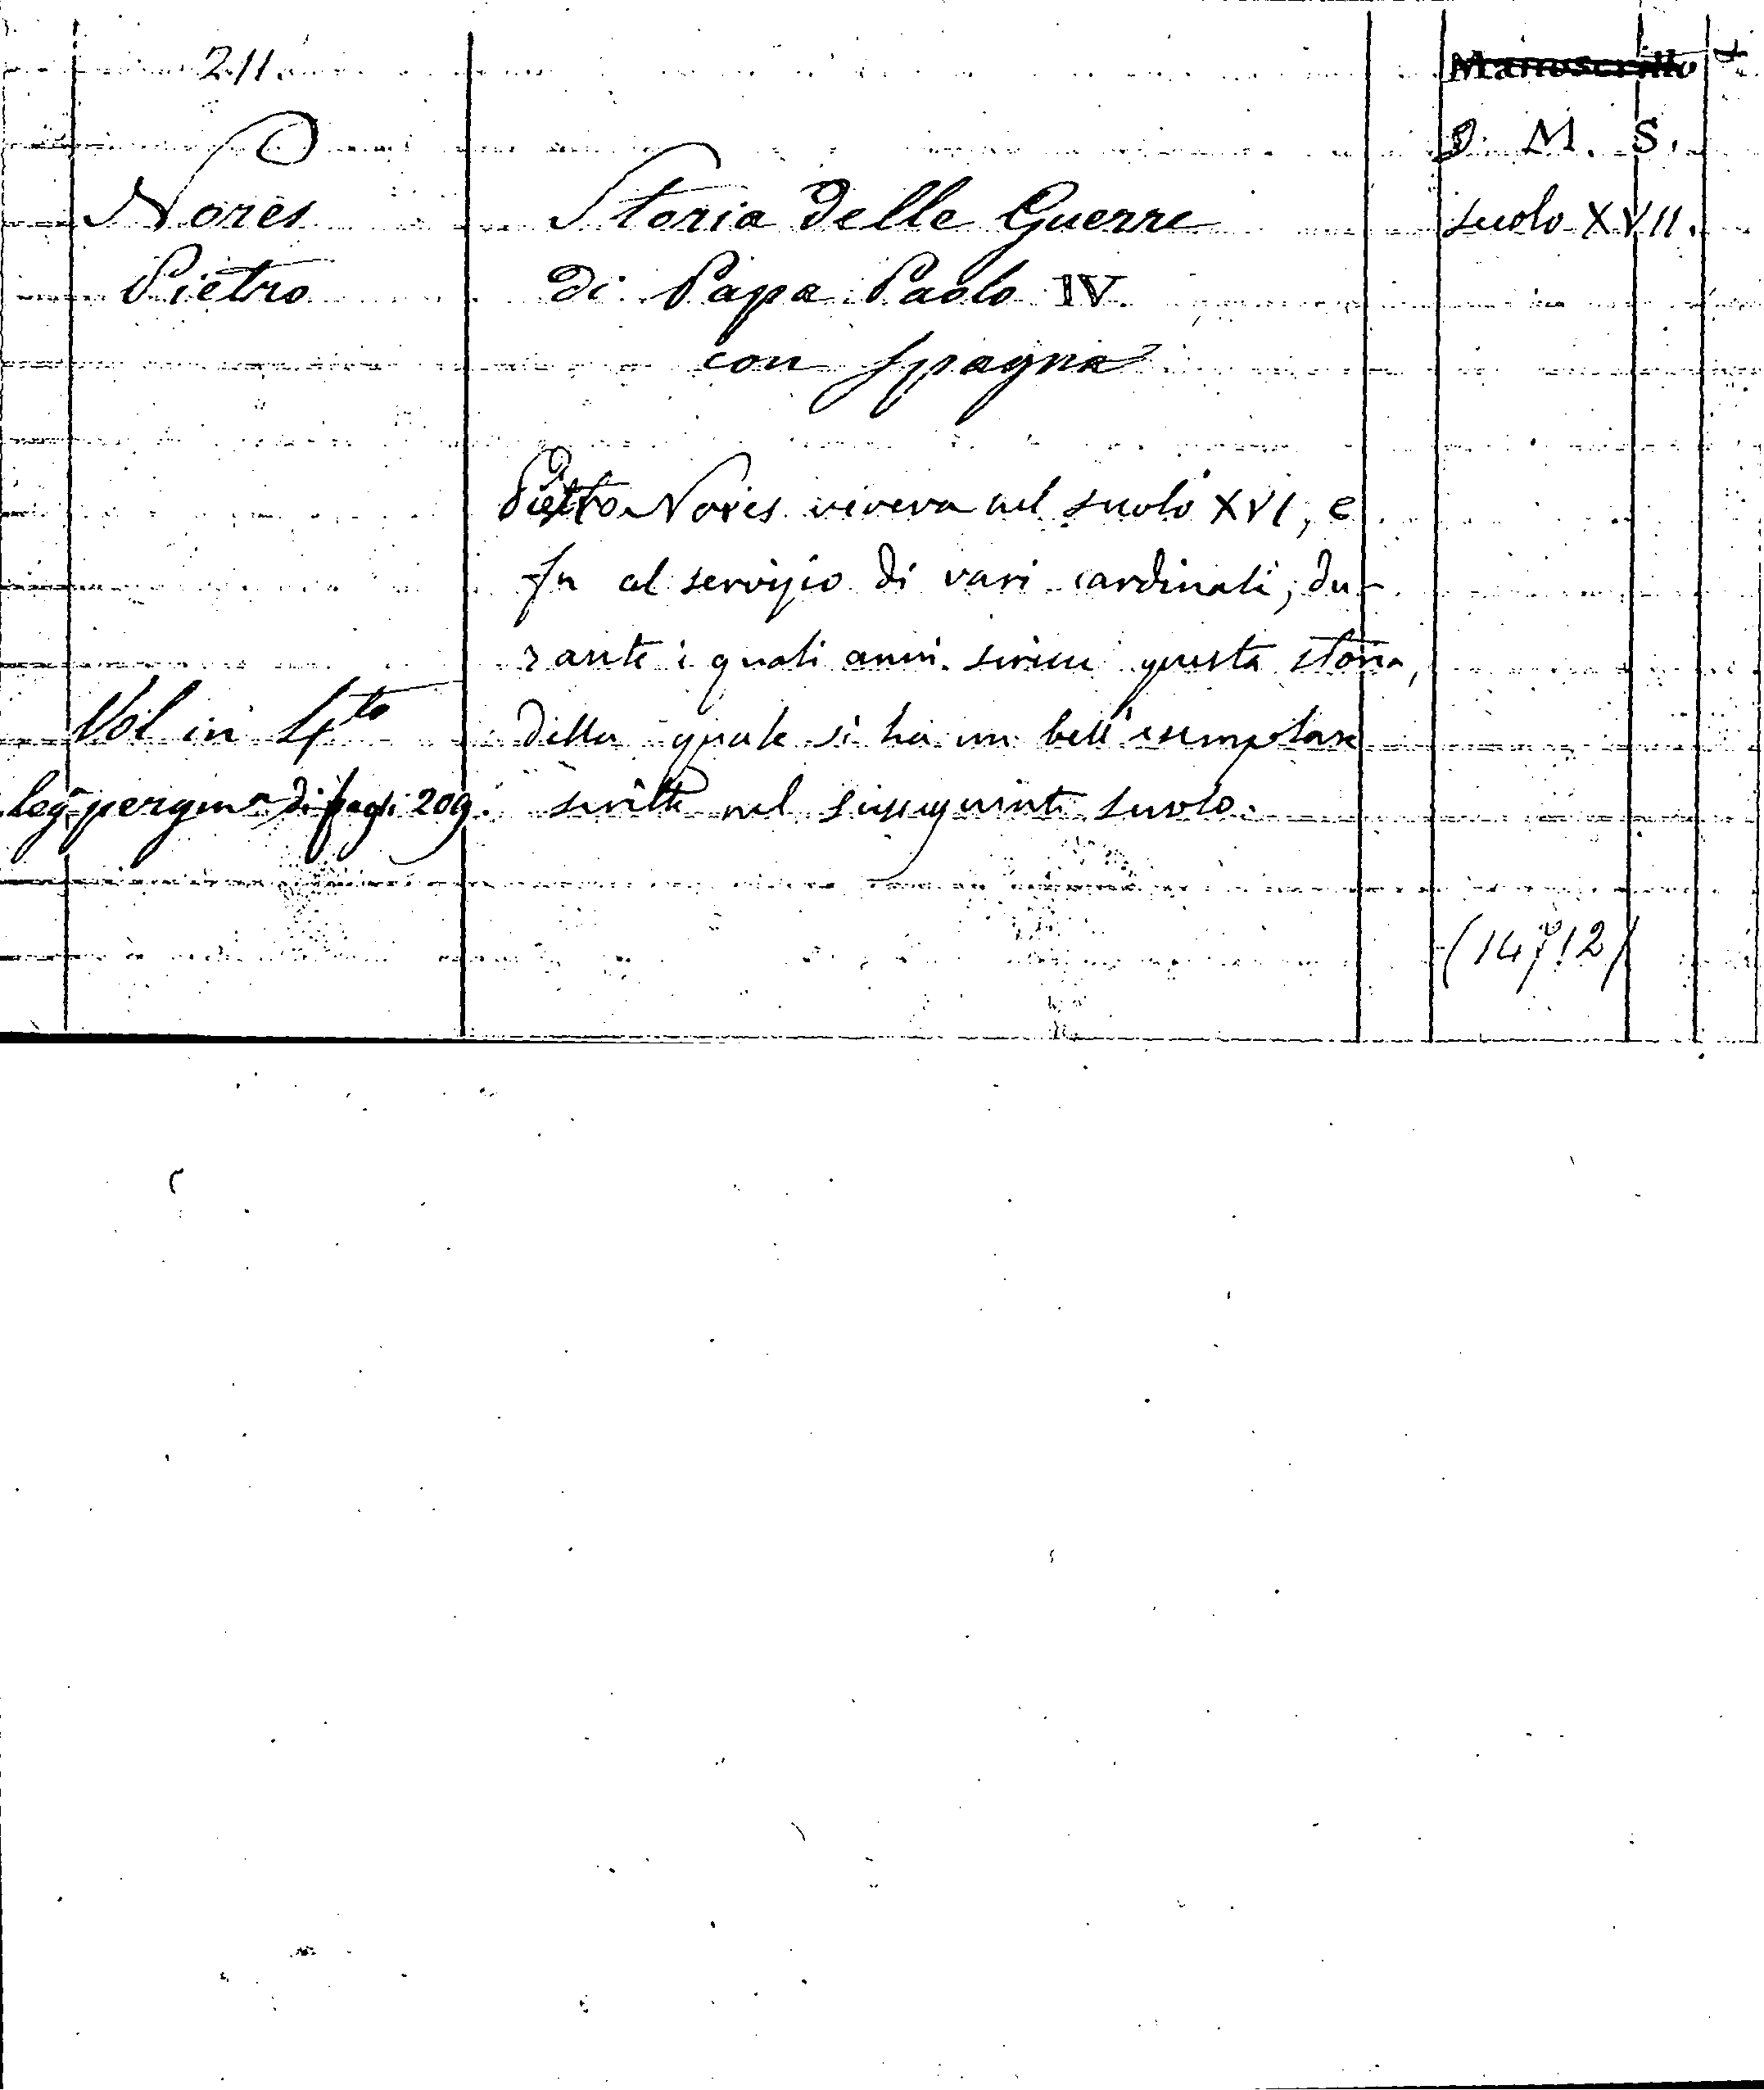 211
Manoscritto
M. S.
Nores
Storia delle Guerre
secolo XVII.
Pietro
di Papa Paolo IV.
con Spagna
Pietro Nores viveva nel secolo XVI, e
fu al servizio di vari cardinali, du-
rante i quali anni scrisse questa storia,
Vol in 4to
della quale si ha un bell'esemplare
leg pergna di pagi 209.
scritto nel susseguente secolo.